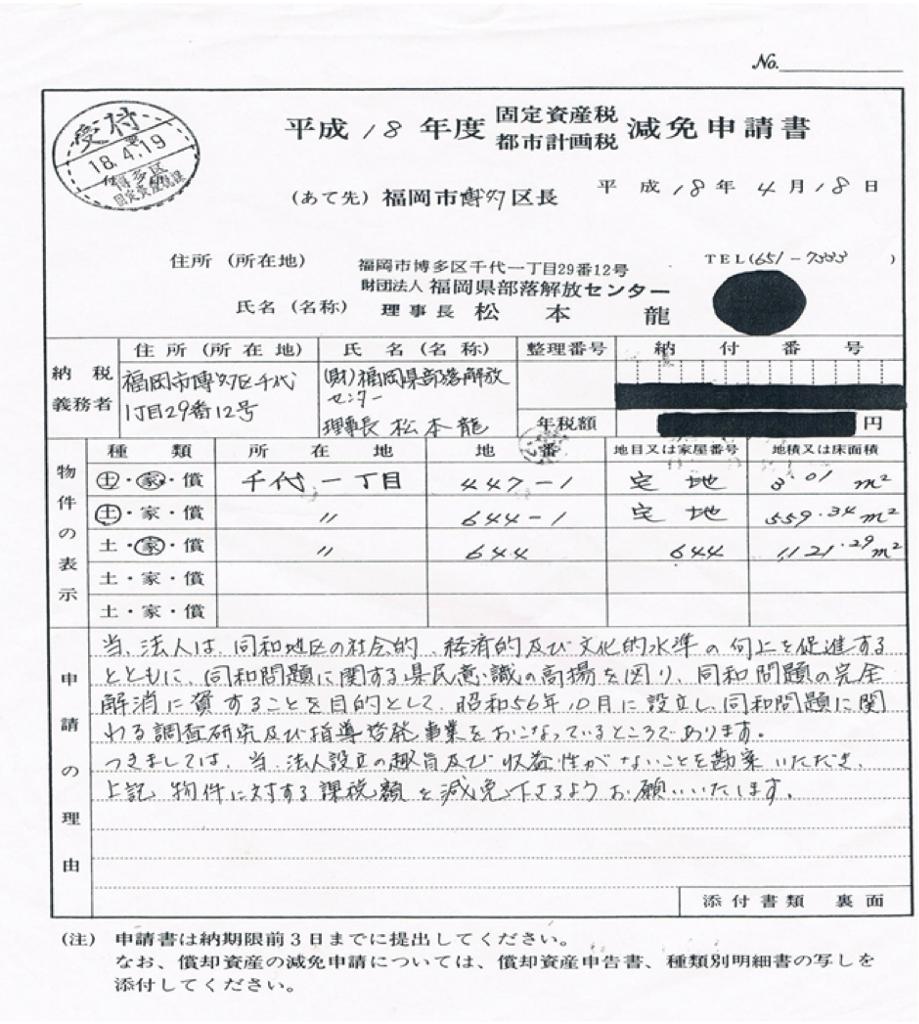 No.
受付
18.4.19
博多区
固定資産税課
平成18年度 固定資産税 都市計画税 減免申請書
(あて先) 福岡市博多区長 平成18年4月18日
住所 (所在地) 福岡市博多区千代一丁目29番12号 TEL(651-7333)
財団法人 福岡県部落解放センター
氏名 (名称) 理事長 松本 龍
納税義務者 住所 (所在地) 氏名 (名称) 整理番号 納付番号
福岡市博多区千代 (財)福岡県部落解放
1丁目29番12号 センター
理事長 松本龍 年税額 円
物件の表示 種類 所在地 地番 地目又は家屋番号 地積又は床面積
土・家・償 千代一丁目 447-1 宅地 3.01 m²
土・家・償 〃 644-1 宅地 559.34 m²
土・家・償 〃 644 644 1121.29 m²
土・家・償
土・家・償
申請の理由
当、法人は、同和地区の社会的、経済的及び文化的水準の向上を促進する
とともに、同和問題に関する県民意識の高揚を図り、同和問題の完全
解消に資することを目的として、昭和56年10月に設立し、同和問題に関
わる調査研究及び指導啓発事業をおこなっているところであります。
つきましては、当、法人設立の趣旨及び収益性がないことを勘案いただき、
上記物件に対する課税額を減免下さるようお願いいたします。
添付書類 裏面
(注) 申請書は納期限前3日までに提出してください。
なお、償却資産の減免申請については、償却資産申告書、種類別明細書の写しを
添付してください。